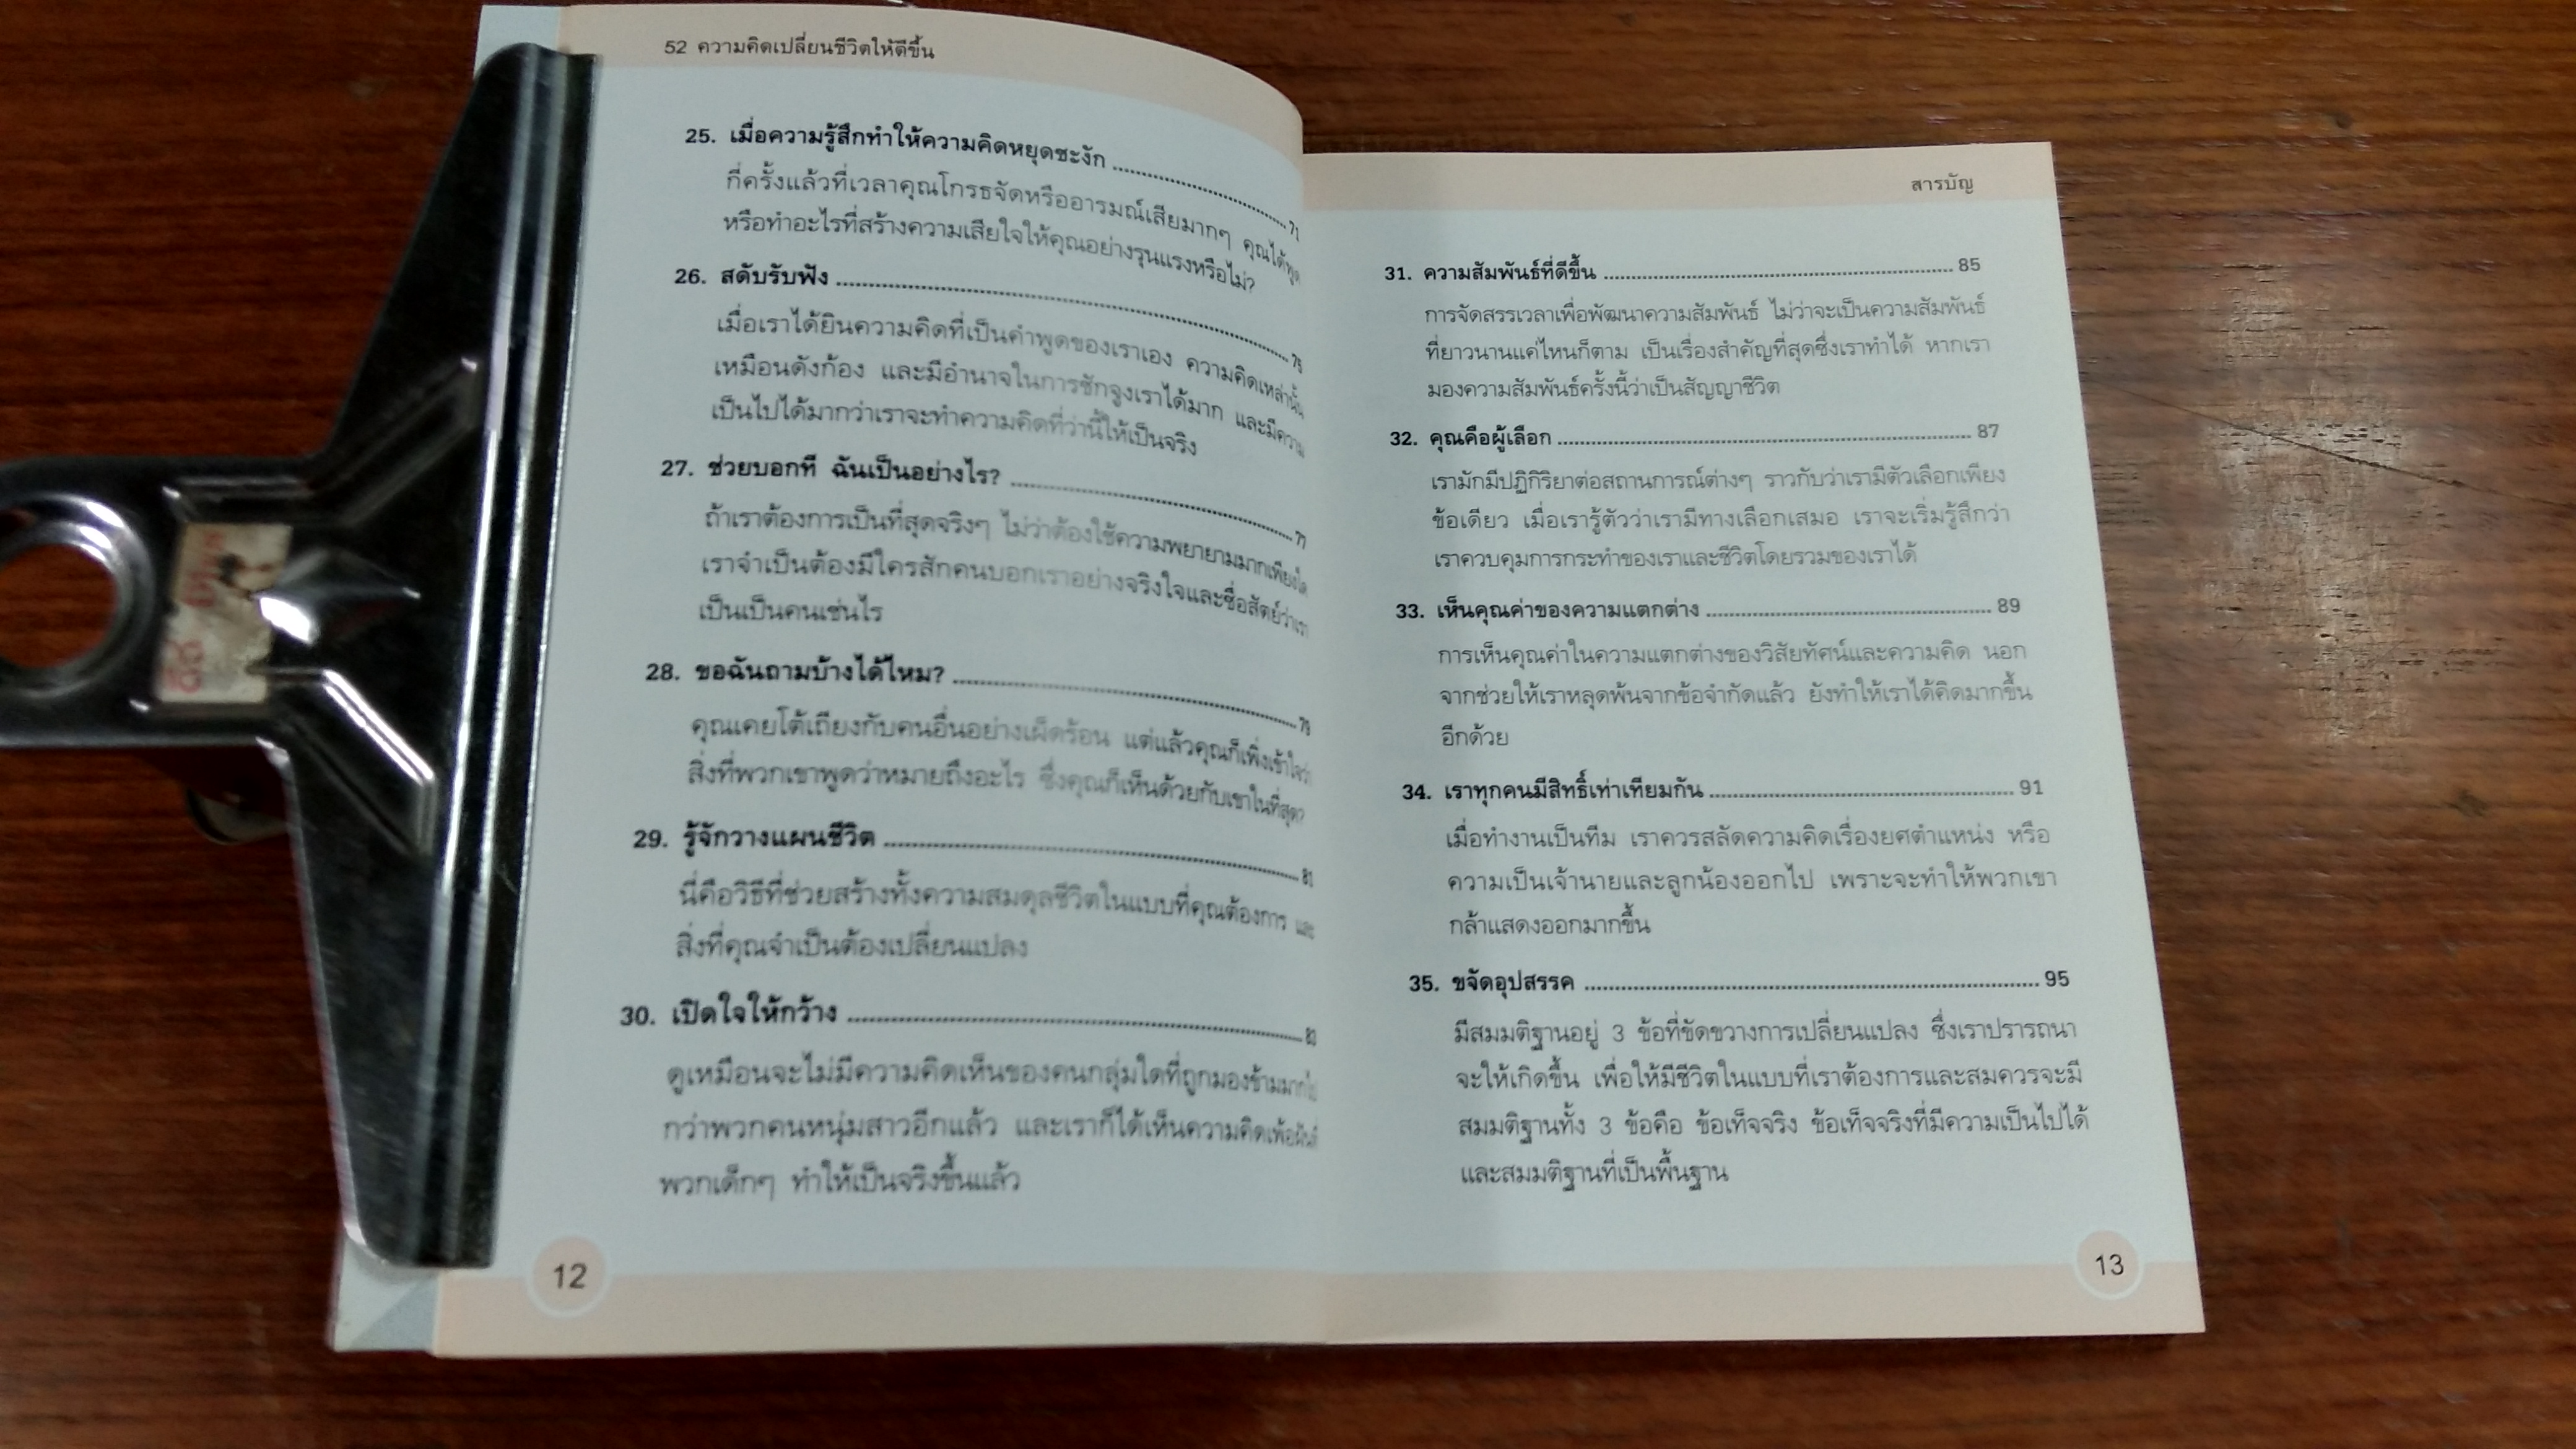 52 ความคิดเปลี่ยนชีวิตให้ดีขึ้น
25. เมื่อความรู้สึกทำให้ความคิดหยุดชะงัก ........................
กี่ครั้งแล้วที่เวลาคุณโกรธจัดหรืออารมณ์เสียมากๆ คุณได้พูด
หรือทำอะไรที่สร้างความเสียใจให้คุณอย่างรุนแรงหรือไม่?
26. สดับรับฟัง ........................
เมื่อเราได้ยินความคิดที่เป็นคำพูดของเราเอง ความคิดเหล่านั้น
เหมือนดังก้อง และมีอำนาจในการชักจูงเราได้มาก และมีความ
เป็นไปได้มากว่าเราจะทำความคิดที่ว่านี้ให้เป็นจริง
27. ช่วยบอกที ฉันเป็นอย่างไร? ........................ 77
ถ้าเราต้องการเป็นที่สุดจริงๆ ไม่ว่าต้องใช้ความพยายามมากเพียงใด
เราจำเป็นต้องมีใครสักคนบอกเราอย่างจริงใจและซื่อสัตย์ว่าเรา
เป็นเป็นคนเช่นไร
28. ขอฉันถามบ้างได้ไหม? ........................ 79
คุณเคยโต้เถียงกับคนอื่นอย่างเผ็ดร้อน แต่แล้วคุณก็เพิ่งเข้าใจว่า
สิ่งที่พวกเขาพูดว่าหมายถึงอะไร ซึ่งคุณก็เห็นด้วยกับเขาในที่สุด?
29. รู้จักวางแผนชีวิต ........................ 81
นี่คือวิธีที่ช่วยสร้างทั้งความสมดุลชีวิตในแบบที่คุณต้องการ และ
สิ่งที่คุณจำเป็นต้องเปลี่ยนแปลง
30. เปิดใจให้กว้าง ........................ 83
ดูเหมือนจะไม่มีความคิดเห็นของคนกลุ่มใดที่ถูกมองข้าม
กว่าพวกคนหนุ่มสาวอีกแล้ว และเราก็ได้เห็นความคิดเพ้อฝันที่
พวกเด็กๆ ทำให้เป็นจริงขึ้นแล้ว
12
สารบัญ
31. ความสัมพันธ์ที่ดีขึ้น ........................ 85
การจัดสรรเวลาเพื่อพัฒนาความสัมพันธ์ ไม่ว่าจะเป็นความสัมพันธ์
ที่ยาวนานแค่ไหนก็ตาม เป็นเรื่องสำคัญที่สุดซึ่งเราทำได้ หากเรา
มองความสัมพันธ์ครั้งนี้ว่าเป็นสัญญาชีวิต
32. คุณคือผู้เลือก ........................ 87
เรามักมีปฏิกิริยาต่อสถานการณ์ต่างๆ ราวกับว่าเรามีตัวเลือกเพียง
ข้อเดียว เมื่อเรารู้ตัวว่าเรามีทางเลือกเสมอ เราจะเริ่มรู้สึกว่า
เราควบคุมการกระทำของเราและชีวิตโดยรวมของเราได้
33. เห็นคุณค่าของความแตกต่าง ........................ 89
การเห็นคุณค่าในความแตกต่างของวิสัยทัศน์และความคิด นอก
จากช่วยให้เราหลุดพ้นจากข้อจำกัดแล้ว ยังทำให้เราได้คิดมากขึ้น
อีกด้วย
34. เราทุกคนมีสิทธิ์เท่าเทียมกัน ........................ 91
เมื่อทำงานเป็นทีม เราควรสลัดความคิดเรื่องยศตำแหน่ง หรือ
ความเป็นเจ้านายและลูกน้องออกไป เพราะจะทำให้พวกเขา
กล้าแสดงออกมากขึ้น
35. ขจัดอุปสรรค ........................ 95
มีสมมติฐานอยู่ 3 ข้อที่ขัดขวางการเปลี่ยนแปลง ซึ่งเราปรารถนา
จะให้เกิดขึ้น เพื่อให้มีชีวิตในแบบที่เราต้องการและสมควรจะมี
สมมติฐานทั้ง 3 ข้อคือ ข้อเท็จจริง ข้อเท็จจริงที่มีความเป็นไปได้
และสมมติฐานที่เป็นพื้นฐาน
13